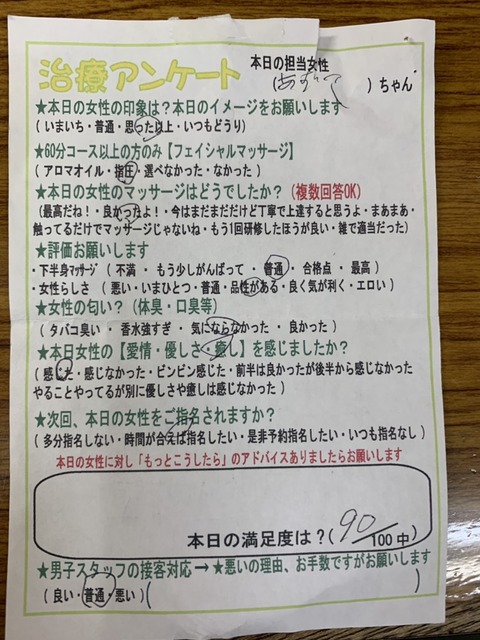 治療アンケート
本日の担当女性
( )ちゃん
★本日の女性の印象は？本日のイメージをお願いします
( いまいち・普通・思った以上・いつもどうり )
★60分コース以上の方のみ【フェイシャルマッサージ】
( アロマオイル・指圧・選べなかった・なかった )
★本日の女性のマッサージはどうでしたか？(複数回答OK)
(最高だね！・良かったよ！・今はまだまだだけど丁寧で上達すると思うよ・まあまあ・
触ってるだけでマッサージじゃないね・もう1回研修したほうが良い・雑で適当だった)
★評価お願いします
・下半身ﾏｯｻｰｼﾞ ( 不満 ・ もう少しがんばって ・ 普通 ・ 合格点 ・ 最高 )
・女性らしさ ( 悪い・いまひとつ・普通・品性がある・良く気が利く・エロい )
★女性の匂い？（体臭・口臭等）
( タバコ臭い ・ 香水強すぎ ・ 気にならなかった ・ 良かった )
★本日女性の【愛情・優しさ・癒し】を感じましたか？
(感じた・感じなかった・ビンビン感じた・前半は良かったが後半から感じなかった
やることやってるが別に優しさや癒しは感じなかった )
★次回、本日の女性をご指名されますか？
( 多分指名しない・時間が合えば指名したい・是非予約指名したい・いつも指名なし )
本日の女性に対し「もっとこうしたら」のアドバイスありましたらお願いします
本日の満足度は？( 90/100中 )
★男子スタッフの接客対応 → ★悪いの理由、お手数ですがお願いします
( 良い・普通・悪い ) ( )